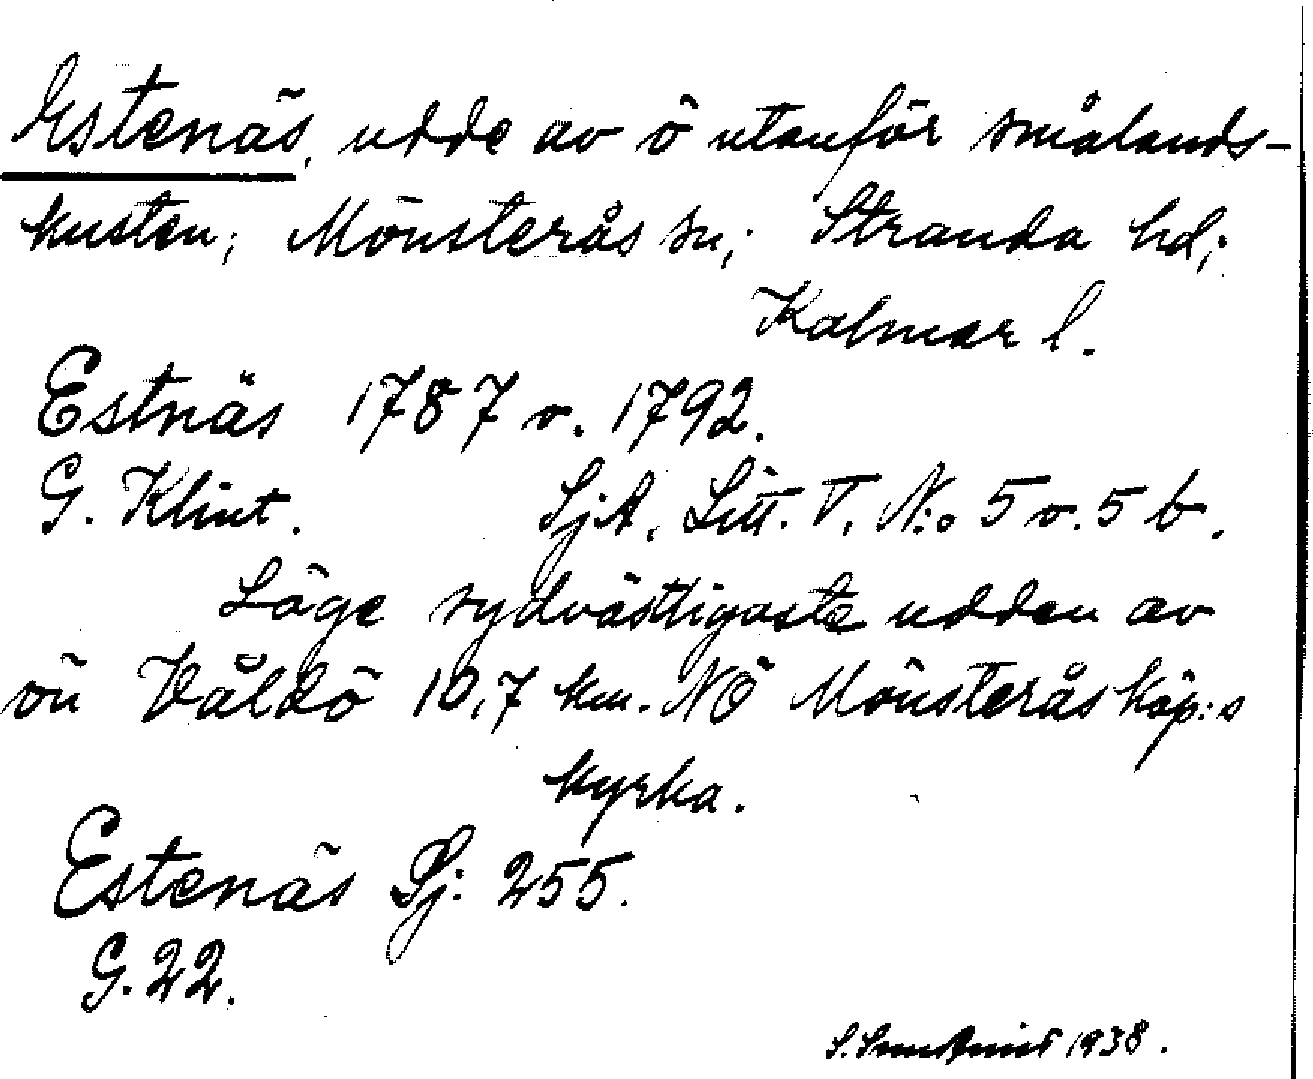 Estenäs, udde av ö utanför smålands-
kusten; Mönsterås sn; Stranda hd;
Kalmar l.
Estnäs 1787 o. 1792.
G. Klint. SjA. Litt. T. N:o 5 o. 5 b.
Läge sydvästligaste udden av
ön Våldö 10,7 km. NÖ Mönsterås köp:s
kyrka.
Estenäs Sj: 255.
G. 22.
1938.